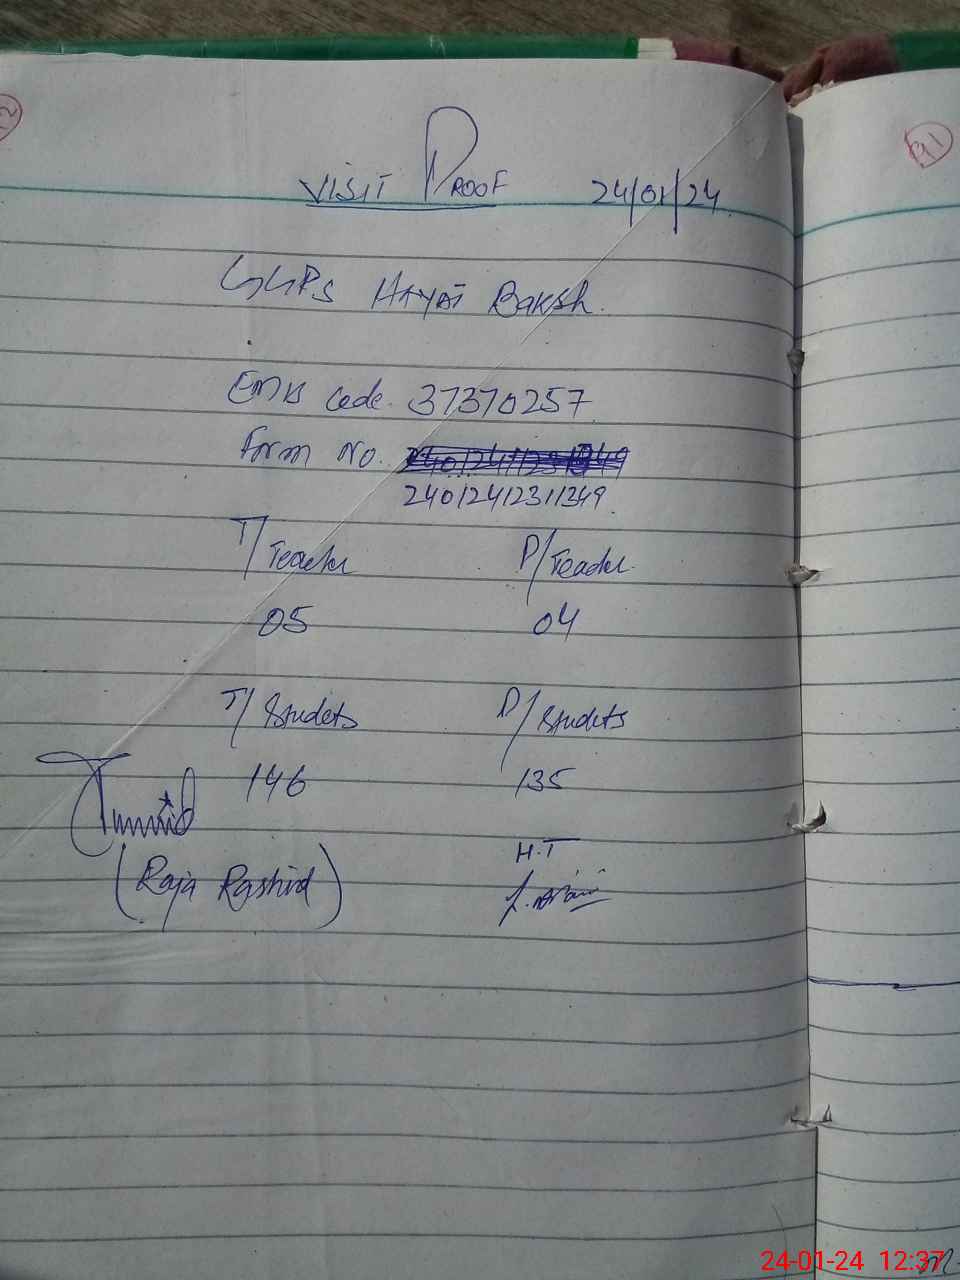 VISIT PROOF 24/01/24
GGPS HAYAT BAKSH.
EMIS Code. 37370257
Form No.
24012412311349
T/Teacher P/Teacher
05 04
T/Students P/Students
146 135
H.T
(Raja Rashid)
24-01-24 12:37